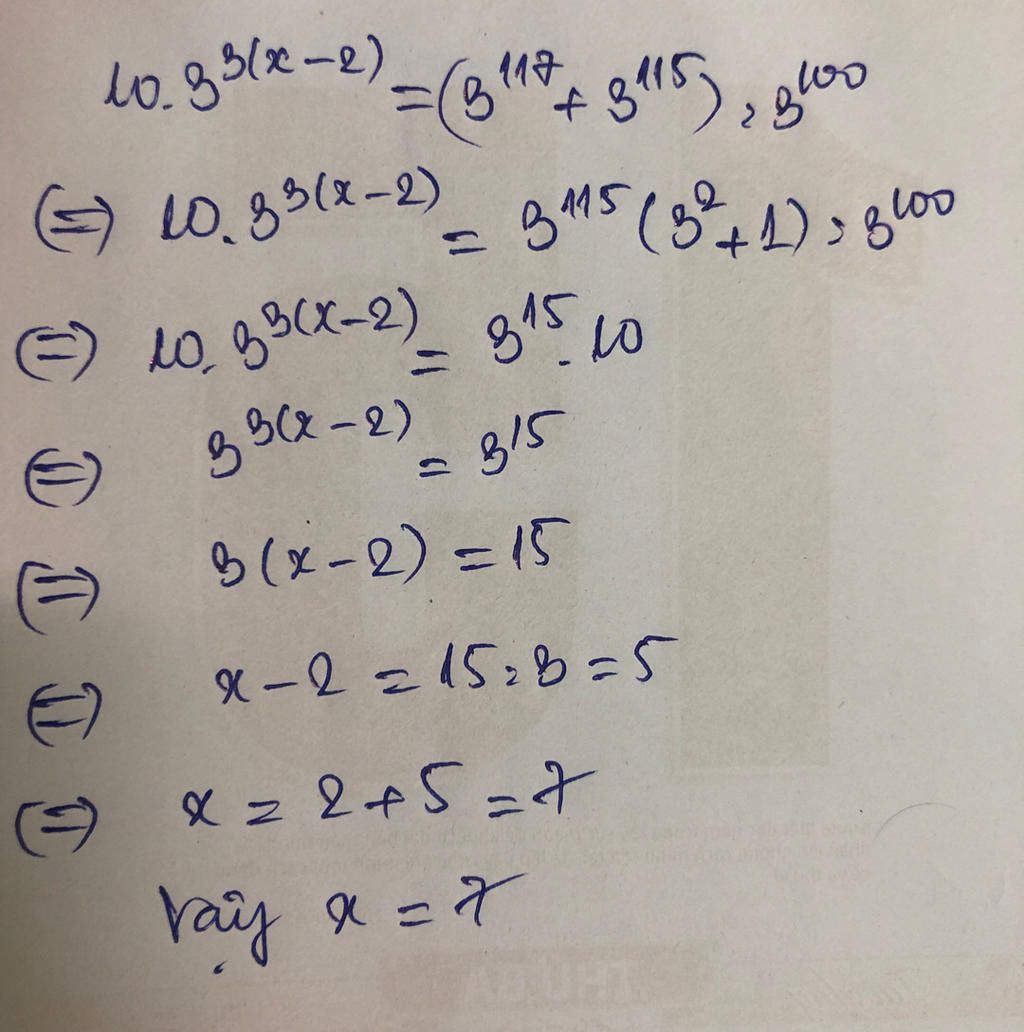 10.3^{3(x-2)} = (3^{117} + 3^{115}) : 3^{100}
(=) 10.3^{3(x-2)} = 3^{115} (3^2 + 1) : 3^{100}
(=) 10.3^{3(x-2)} = 3^{15}.10
(=) 3^{3(x-2)} = 3^{15}
(=) 3(x-2) = 15
(=) x-2 = 15:3 = 5
(=) x = 2+5 = 7
Vậy x = 7
THỨ BA